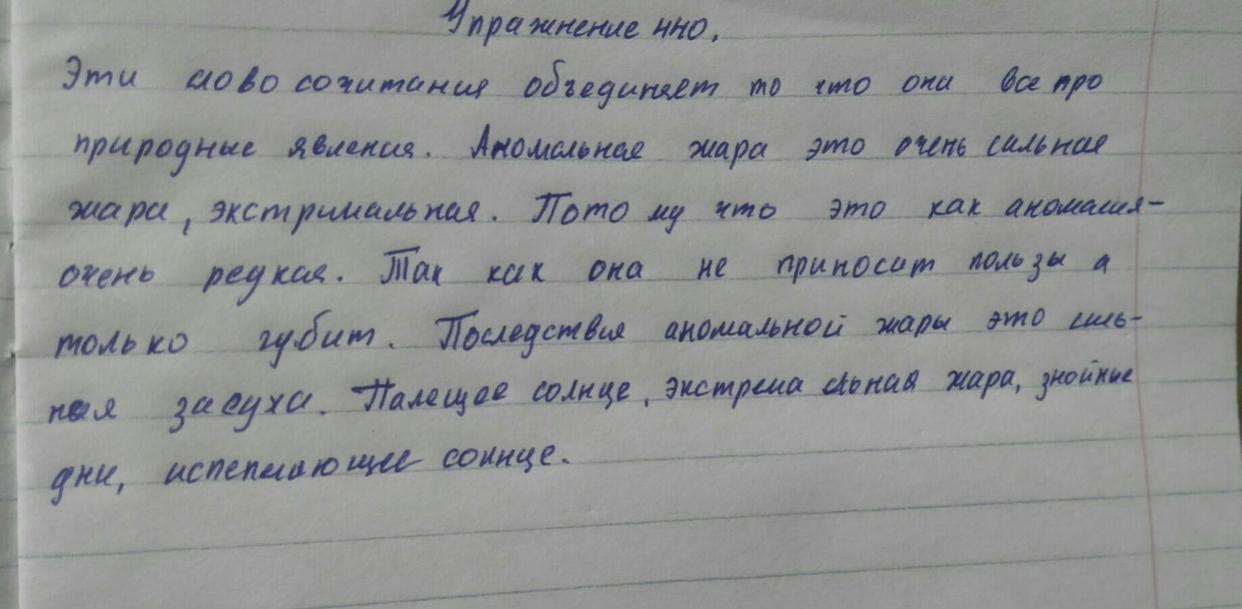 Упражнение 440.
Эти слово сочитания объединяет то что они все про
природные явления. Аномальная жара это очень сильная
жара, экстримальная. Пото му что это как аномалия-
очень редкая. Так как она не приносит пользы а
только губит. Последствия аномальной жары это силь-
ная засуха. Палещее солнце, экстрема льная жара, знойные
дни, испепеляющее солнце.